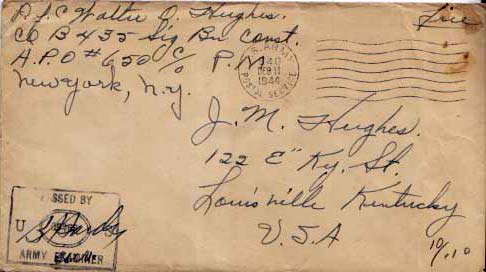 Pfc Walter O. Hughes.
Co B 435 Sig Bn Const.
A.P.O #650 c/o P.M.
New York, N.Y.
Free
U.S. ARMY
FEB 11
1944
POSTAL SERVICE
J. M. Hughes.
122 E" Ky. St.
Louisville Kentucky
U.S.A
10/10
PASSED BY
U S
ARMY EXAMINER